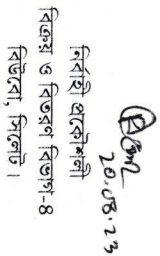 ২০.০৮.২৩
নির্বাহী প্রকৌশলী
বিক্রয় ও বিতরণ বিভাগ-৪
বিউবো, সিলেট।